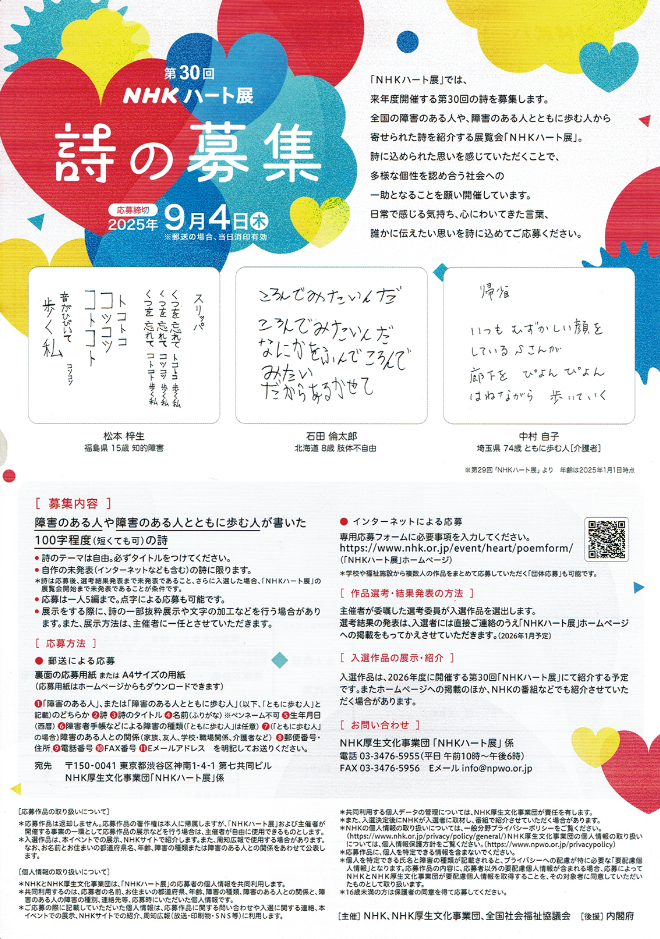 第30回
NHKハート展
詩の募集
応募締切
2025年 9月4日木
※郵送の場合、当日消印有効
「NHKハート展」では、
来年度開催する第30回の詩を募集します。
全国の障害のある人や、障害のある人とともに歩む人から
寄せられた詩を紹介する展覧会「NHKハート展」。
詩に込められた思いを感じていただくことで、
多様な個性を認め合う社会への
一助となることを願い開催しています。
日常で感じる気持ち、心にわいてきた言葉、
誰かに伝えたい思いを詩に込めてご応募ください。
スリッパ
くつを忘れて トコトコ 歩く私
くつを忘れて コツコツ 歩く私
くつを忘れて コトコト 歩く私
トコトコ
コッコツ
コトコト
音がひびいて コツコツ
歩く私
松本 梓生
福島県 15歳 知的障害
ころんでみたいんだ
ころんでみたいんだ
なにかをふんでころんで
みたい
だからあるかせて
石田 倫太郎
北海道 8歳 肢体不自由
帰宿
いつも むずかしい顔を
している Sさんが
廊下を ぴょん ぴょん
はねながら 歩いていく
中村 自子
埼玉県 74歳 ともに歩む人[介護者]
※第29回「NHKハート展」より 年齢は2025年1月1日時点
[ 募集内容 ]
障害のある人や障害のある人とともに歩む人が書いた
100字程度(短くても可)の詩
● 詩のテーマは自由。必ずタイトルをつけてください。
● 自作の未発表(インターネットなども含む)の詩に限ります。
*詩は応募後、選考結果発表まで未発表であること、さらに入選した場合、「NHKハート展」の
展覧会開始まで未発表であることが条件です。
● 応募は一人5編まで。点字による応募も可能です。
● 展示をする際に、詩の一部抜粋展示や文字の加工などを行う場合があり
ます。また、展示方法は、主催者に一任とさせていただきます。
[ 応募方法 ]
● 郵送による応募
裏面の応募用紙 または A4サイズの用紙
(応募用紙はホームページからもダウンロードできます)
❶「障害のある人」、または「障害のある人とともに歩む人」(以下、「ともに歩む人」と
記載)のどちらか ❷詩 ❸詩のタイトル ❹名前(ふりがな)※ペンネーム不可 ❺生年月日
(西暦) ❻障害者手帳などによる障害の種類(「ともに歩む人」は任意) ❼(「ともに歩む人」
の場合)障害のある人との関係(家族、友人、学校・職場関係、介護者など) ❽郵便番号・
住所 ❾電話番号 ❿FAX番号 ⓫Eメールアドレス を明記してお送りください。
宛先 〒150-0041 東京都渋谷区神南1-4-1 第七共同ビル
NHK厚生文化事業団「NHKハート展」係
● インターネットによる応募
専用応募フォームに必要事項を入力してください。
https://www.nhk.or.jp/event/heart/poemform/
(「NHKハート展」ホームページ)
*学校や福祉施設から複数人の作品をまとめて応募していただく「団体応募」も可能です。
[ 作品選考・結果発表の方法 ]
主催者が委嘱した選考委員が入選作品を選出します。
選考結果の発表は、入選者には直接ご連絡のうえ「NHKハート展」ホームページ
への掲載をもってかえさせていただきます。(2026年1月予定)
[ 入選作品の展示・紹介 ]
入選作品は、2026年度に開催する第30回「NHKハート展」にて紹介する予定
です。またホームページへの掲載のほか、NHKの番組などでも紹介させていた
だく場合があります。
[ お問い合わせ ]
NHK厚生文化事業団 「NHKハート展」係
電話 03-3476-5955(平日 午前10時~午後6時)
FAX 03-3476-5956 Eメール info@npwo.or.jp
[応募作品の取り扱いについて]
*応募作品は返却しません。応募作品の著作権は本人に帰属しますが、「NHKハート展」および主催者が
開催する事業の一環として応募作品の展示などを行う場合は、主催者が自由に使用できるものとします。
*入選作品は、本イベントでの展示、NHKサイトで紹介します。また、周知広報で使用する場合があります。
なお、お名前とお住まいの都道府県名、年齢、障害の種類または障害のある人との関係をあわせて公表し
ます。
[個人情報の取り扱いについて]
*NHKとNHK厚生文化事業団は、「NHKハート展」の応募者の個人情報を共同利用します。
*共同利用するのは、応募者の名前、お住まいの都道府県、年齢、障害の種類、障害のある人との関係と、障
害のある人の障害の種別、連絡先等、応募時にいただいた個人情報です。
*ご応募の際に記載していただいた個人情報は、応募作品に関する問い合わせや入選に関する連絡、本
イベントでの展示、NHKサイトでの紹介、周知広報(放送・印刷物・SNS等)に利用します。
*共同利用する個人データの管理については、NHK厚生文化事業団が責任を有します。
*また、入選決定後にNHKが入選者に取材し、番組で紹介させていただく場合があります。
*NHKの個人情報の取り扱いについては、一般分野プライバシーポリシーをご覧ください。
(https://www.nhk.or.jp/privacy/policy/general/)NHK厚生文化事業団の個人情報の取り扱い
については、個人情報保護方針をご覧ください。(https://www.npwo.or.jp/privacypolicy)
*応募作品に、個人を特定できる情報を含まないでください。
*個人を特定できる氏名と障害の種類が記載されると、プライバシーへの配慮が特に必要な「要配慮個
人情報」となります。応募作品の内容に、応募者以外の要配慮個人情報が含まれる場合、応募によって
NHKとNHK厚生文化事業団が要配慮個人情報を取得することを、その対象者に同意していただい
たものとして取り扱います。
*16歳未満の方は保護者の同意を得て応募してください。
[主催] NHK、NHK厚生文化事業団、全国社会福祉協議会 [後援] 内閣府